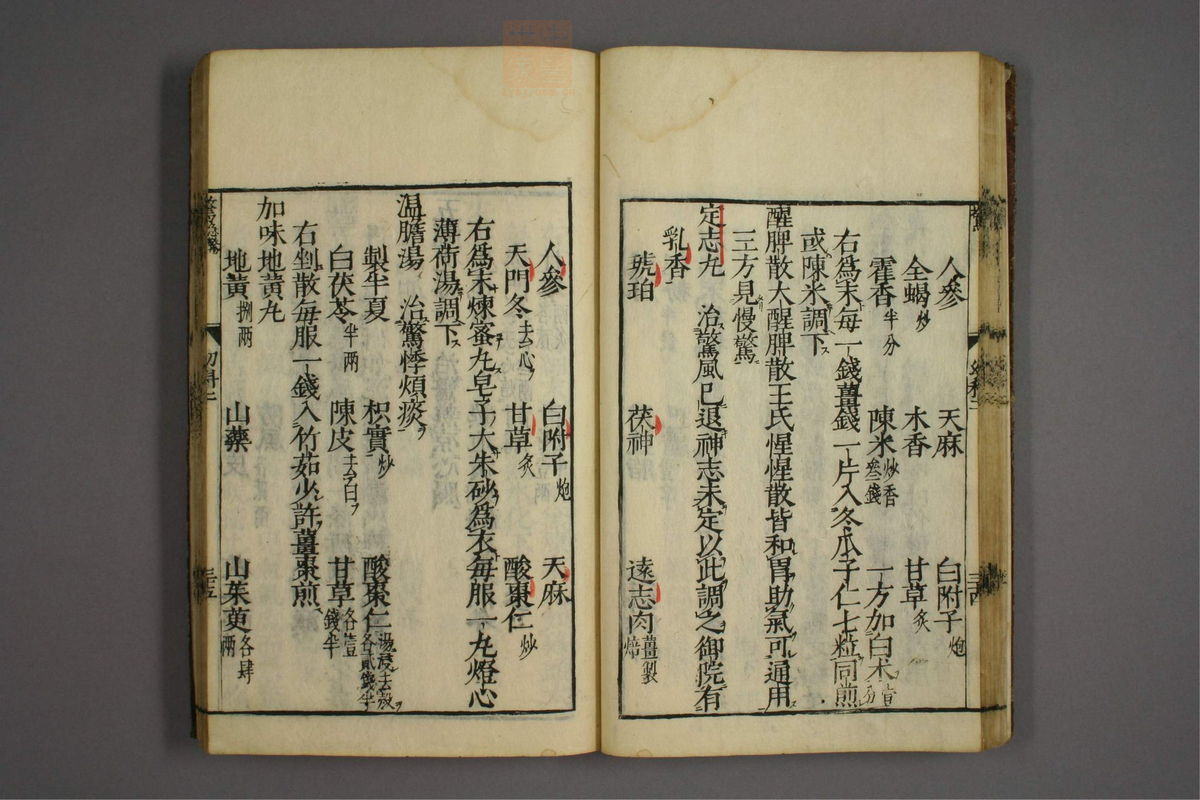 人參　天麻　白附子炮
全蝎炒　木香　甘草炙
霍香半分　陳米炒香叁錢　一方加白朮壹分
右爲末每一錢薑錢一片入冬瓜子仁七粒同煎
或陳米調下
醒脾散大醒脾散王氏惺惺散皆和胃助氣可通用
三方見慢驚
定志丸　治驚風已退神志未定以此調之御院有
乳香
琥珀　茯神　遠志肉薑製焙
人參　白附子炮　天麻
天門冬去心　甘草炙　酸棗仁炒
右爲末煉蜜丸皂子大朱砂爲衣每服一丸燈心
薄荷湯調下
温膽湯　治驚悸煩痰
製半夏　枳實炒　酸棗仁湯浸去殼各貳錢半
白茯苓半兩　陳皮去白　甘草各壹錢半
右剉散每服一錢入竹茹少許薑棗煎
加味地黃丸
地黃捌兩　山藥　山茱萸各肆兩
幼科二
三五